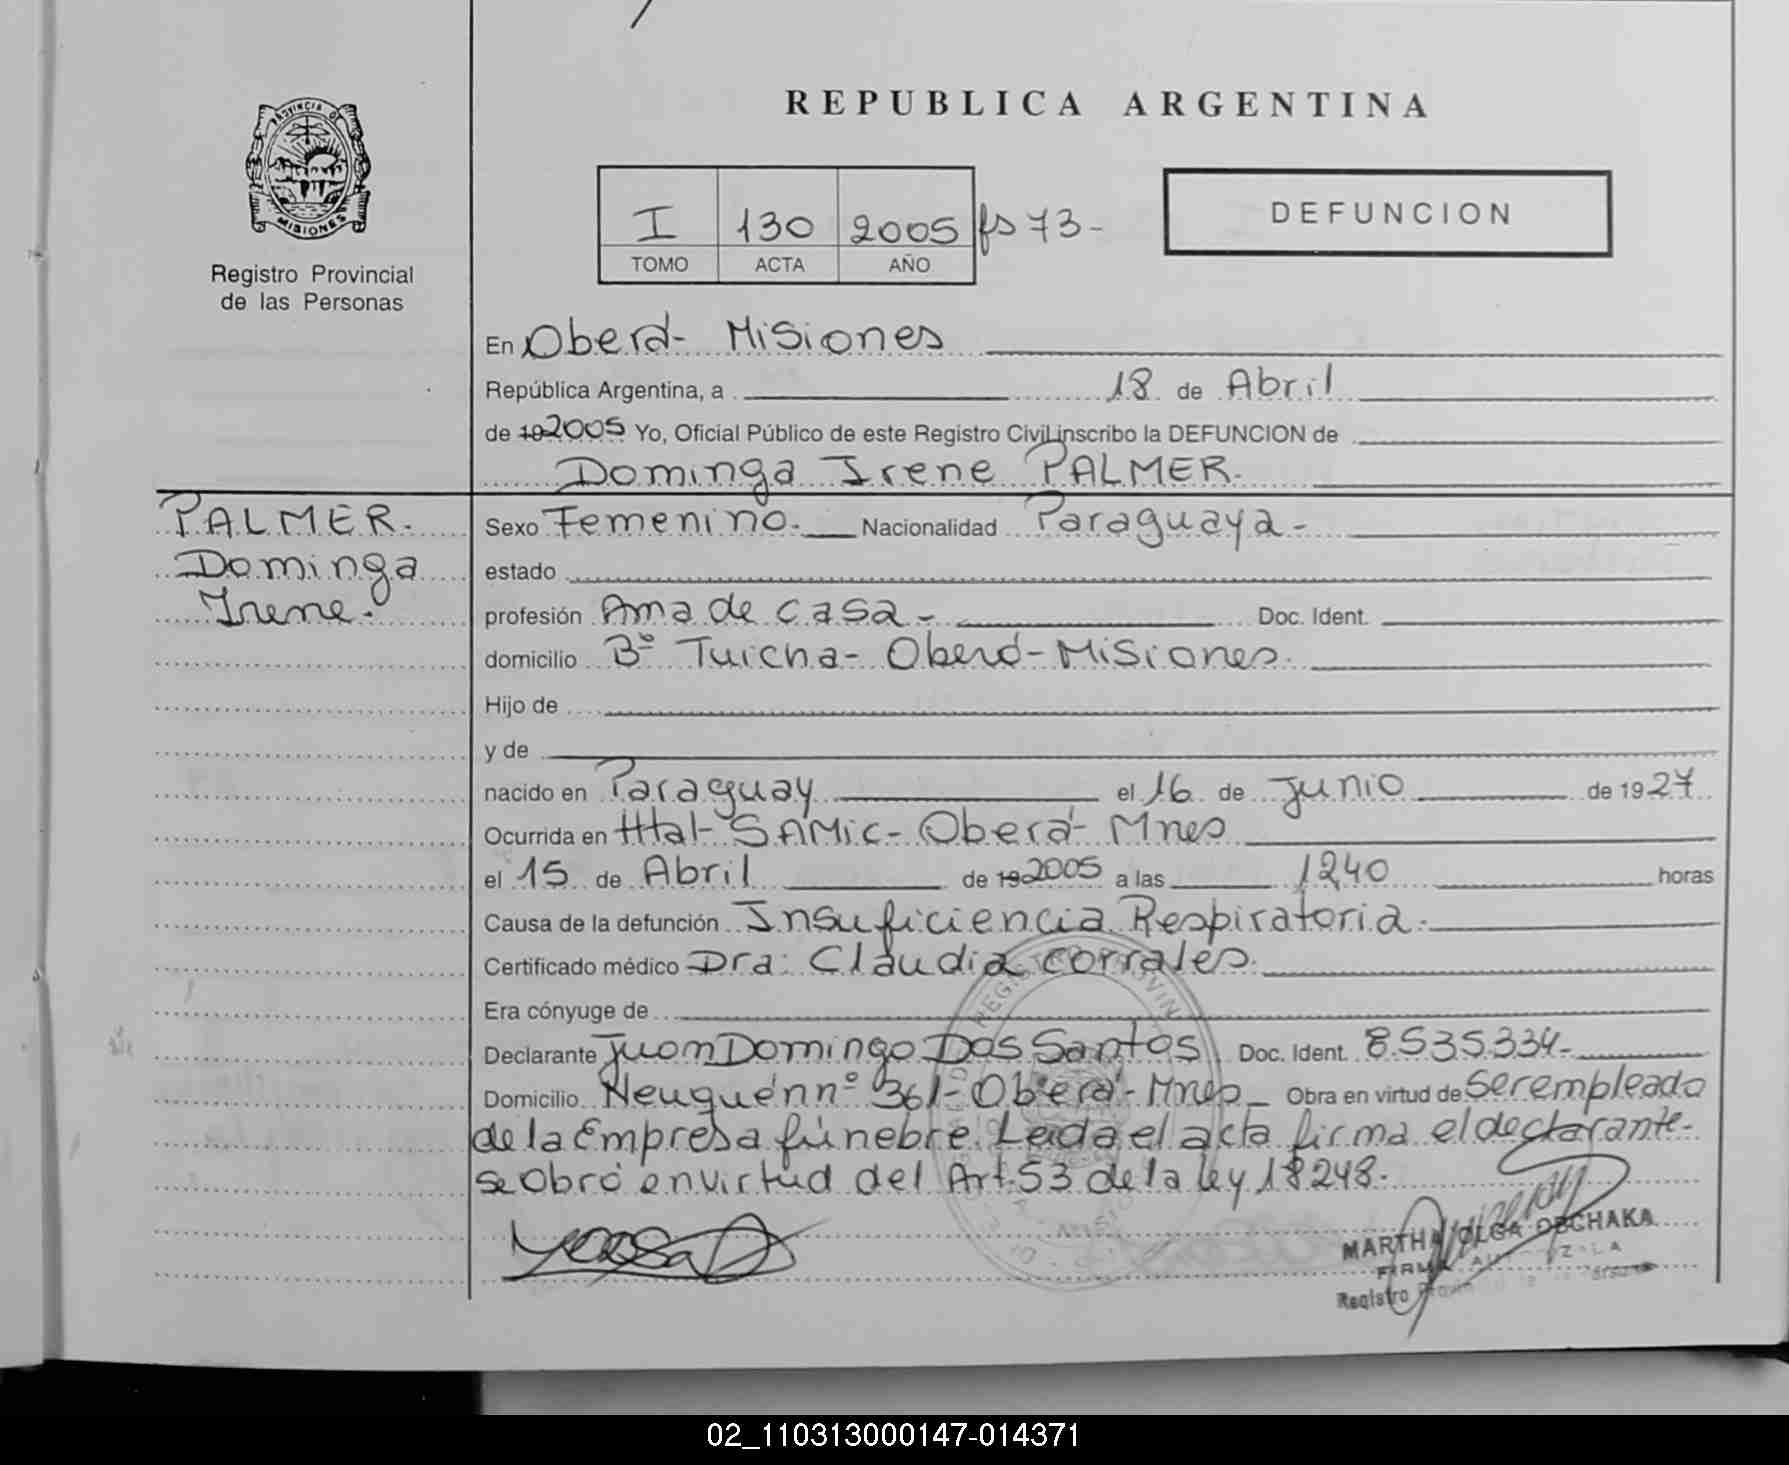 REPUBLICA ARGENTINA
PROVINCIA DE
MISIONES
Registro Provincial
de las Personas
I 130 2005 fs 73-
TOMO ACTA AÑO
DEFUNCION
En Oberá- Misiones
República Argentina, a 18 de Abril
de 19 2005 Yo, Oficial Público de este Registro Civil inscribo la DEFUNCION de
Dominga Irene PALMER.
PALMER.
Dominga
Irene.
Sexo Femenino. Nacionalidad Paraguaya-
estado
profesión Ama de casa- Doc. Ident.
domicilio Bº Tuicha- Oberá-Misiones.
Hijo de
y de
nacido en Paraguay el 16 de Junio de 1927
Ocurrida en Htal- SAMic- Oberá- Mnes
el 15 de Abril de 19 2005 a las 12,40 horas
Causa de la defunción Insuficiencia Respiratoria.
Certificado médico Dra: Claudia Corrales.
Era cónyuge de
Declarante Juan Domingo Dos Santos Doc. Ident. 8.535.334-
Domicilio Neuquén nº 361- Oberá- Mnes Obra en virtud de ser empleado
de la Empresa fúnebre. Leida el acta firma el declarante-
se Obró en virtud del Art. 53 de la ley 18248-
MARTHA OLGA OBCHAKA
FIRMA
Registro
02_110313000147-014371